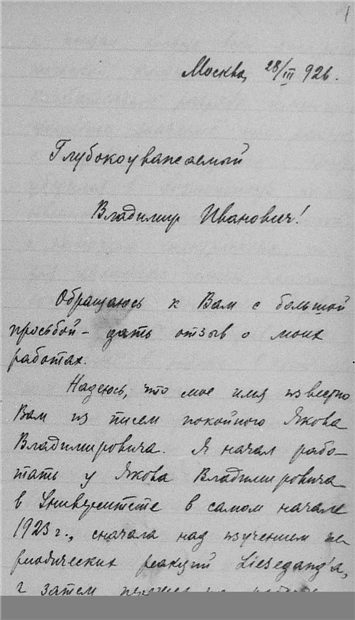 1
Москва, 28/III 926.
Глубокоуважаемый
Владимир Иванович!
Обращаюсь к Вам с большой
просьбой - дать отзыв о моих
работах.
Надеюсь, что мое имя известно
Вам из писем покойного Якова
Владимировича. Я начал рабо-
тать у Якова Владимировича
в Университете в самом начале
1923 г., сначала над изучением пе-
риодических реакций Liesegang'a,
а затем